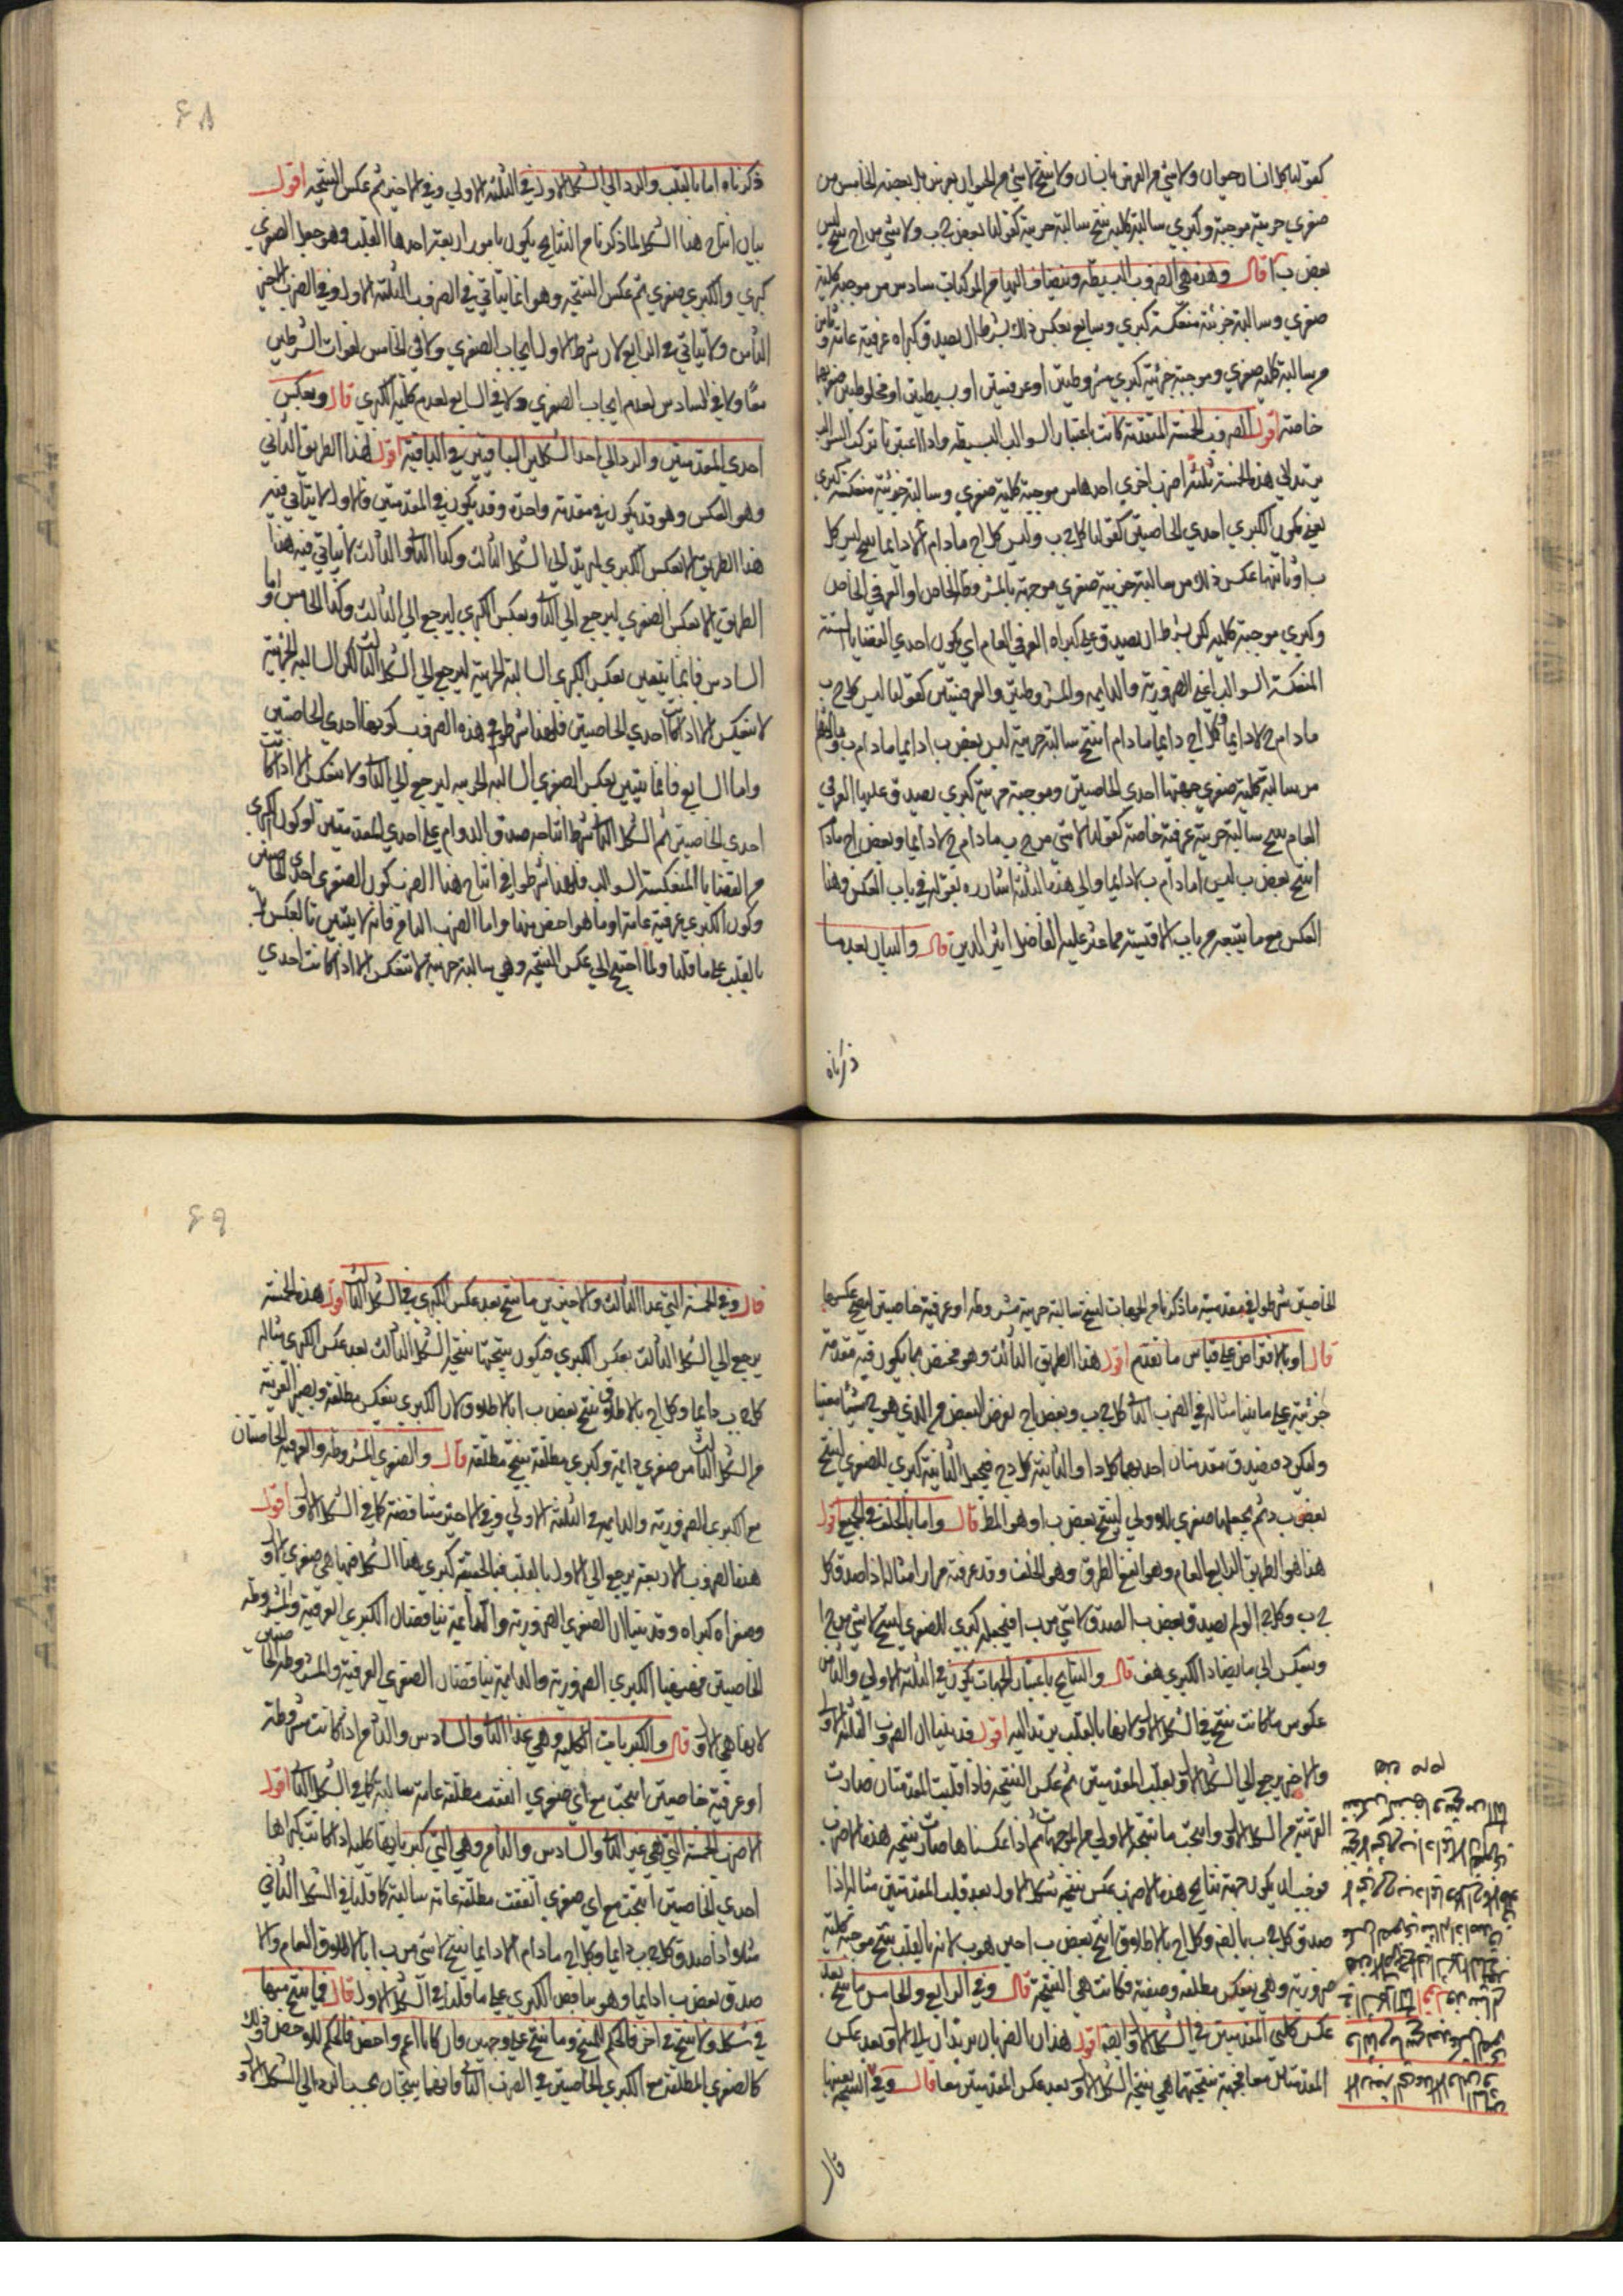 كقولنا كل انسان حيوان ولا شي من الفرس بانسان ولا ينتج لا شي من الحيوان بفرس بل بعضه الخامس من
صغري جزيية موجبة وكبري سالبة كلية ينتج سالبة جزيية كقولنا بعض ج ب ولا شي من ا ج ينتج ليس
بعض ب ا قال وهذه هي الضروب البسيطة وينضاف اليها من المركبات سادس من موجبة كلية
صغري وسالبة جزئية منعكسة كبري وسابع بعكس ذلك بشرط ان يصدق كبراه عرفية عامة وثامن
من سالبة كلية صغري وموجبة جزئية كبري مشروطتين او عرفيتين او بسيطتين او مخلوطتين صغريهما
خاصة اقول الضروب الخمسة المتقدمة كانت باعتبار السوالب البسيطة واذا اعتبرنا تركب السوالب
يزيد الي هذه الخمسة ثلثة اضرب اخري احدها من موجبة كلية صغري وسالبة جزئية منعكسة كبري
يعني يكون الكبري احدي الخاصتين كقولنا كل ج ب وليس كل ا ج مادام ا لا دايما ينتج ليس كل
ب ا وثانيها عكس ذلك من سالبة جزيية صغري موجهة بالمشروطة الخاص او العرفي الخاص
وكبري موجبة كلية لكن بشرط ان يصدق علي كبراه العرفي العام اي يكون احدي القضايا الستة
المنعكسة السوالب اعني الضرورية والدايمة والمشروطتين والعرفيتين كقولنا ليس كل ج ب
مادام ج لا دايما وكل ا ج دايما مادام ا ينتج سالبة جزيية ليس بعض ب ا دايما مادام ب وثالثها
من سالبة كلية صغري جهتها احدي الخاصتين وموجبة جزيية كبري يصدق عليها العرفي
العام ينتج سالبة جزيية عرفية خاصة كقولنا لا شي من ج ب مادام ج لا دايما وبعض ا ج مادام
ا ينتج بعض ب ليس ا مادام ب لا دايما والي هذه الثلثة اشار ره بقوله في باب العكس وهذا
العكس مع ما يتبعه من باب الاقيسة مما عثر عليه الفاضل اثير الدين قال والبيان بعد ما
ذكرناه
٤٨
ذكرناه اما بالقلب والرد الي الشكل الاول في الثلثة الاولي وفي الاخير ثم عكس النتيجة اقول
بيان انتاج هذا الشكل لما ذكرنا من النتايج يكون بامور اربعة احدها القلب وهو جعل الصغري
كبري والكبري صغري ثم عكس النتيجة وهو انما يتاتي في الضروب الثلثة الاول وفي الضرب الاخير
الثامن ولا يتاتي في الرابع لان شرط الاول ايجاب الصغري ولا في الخامس لفوات الشرطين
معا ولا في السادس لعدم ايجاب الصغري ولا في السابع لعدم كلية الكبري قال وبعكس
احدي المقدمتين والرد الي احد الشكلين الباقيين في الباقية اقول هذا الطريق الثاني
وهو العكس وهو قد يكون في مقدمة واحدة وقد يكون في المقدمتين فالاول لا يتاتي فيه
هذا الطريق الا بعكس الكبري ليرتد الي الشكل الثالث وكذا الثاني والثالث لا يتاتي فيه هذا
الطريق الا بعكس الصغري ليرجع الي الثاني وبعكس الكبري ليرجع الي الثالث وكذا الخامس واما
السادس فانما يتبين بعكس الكبري السالبة الجزيية ليرجع الي الشكل الثالث لكن السالبة الجزيية
لا تنعكس الا اذا كانت احدي الخاصتين فلهذا شرطوا في هذه الضروب كونها احدي الخاصتين
واما السابع فانما يتبين بعكس الصغري السالبة الجزيية ليرجع الي الثاني ولا تنعكس الا اذا كانت
احدي الخاصتين ثم الشكل الثاني شرط انتاجه صدق الدوام علي احدي المقدمتين او كون الكبري
من القضايا المنعكسة السوالب فلهذا شرطوا في انتاج هذا الضرب كون الصغري احدي الخاصتين
وكون الكبري عرفية عامة او ما هو اخص منها واما الضرب الثامن فانه لا يتبين بالعكس بل
بالقلب علي ما قلنا ولما احتيج الي عكس النتيجة وهي سالبة جزيية لا تنعكس الا اذا كانت احدي
الخاصتين شرطوا في مقدمتيه ما ذكرنا من الجهات لينتج سالبة جزيية مشروطة او عرفية خاصتين ليصح عكسها
قال او بالافتراض علي قياس ما تقدم اقول هذا الطريق الثالث وهو مختص بما يكون فيه مقدمة
جزئية علي ما بينا مثاله في الضرب الثاني كل ج ب وبعض ا ج نفرض البعض من الذي هو ج شيئا معينا
وليكن د فيصدق مقدمتان احديهما كل د ا والثانية كل د ج فنجعل الثانية كبري للصغري لينتج
بعض ب د ثم نجعلها صغري للاولي لينتج بعض ب ا وهو المط قال واما بالخلف في الجميع اقول
هذا هو الطريق الرابع العام وهو انفع الطرق وهو الخلف وقد عرفته مرارا مثاله اذا صدق كل
ج ب وكل ا ج لو لم يصدق بعض ب ا لصدق لا شي من ب ا فنجعله كبري للصغري لينتج لا شي من ج ا
وينعكس الي ما يضاد الكبري هف قال والنتايج باعتبار الجهات يكون في الثلثة الاولي والثامن
عكوس ما كانت تنتج في الشكل الاول لانها بالقلب يرتد اليه اقول قد بينا ان الضروب الثلثة الاول
والاخير يرجع الي الشكل الاول بقلب المقدمتين ثم عكس النتيجة فاذا قلبت المقدمتان صارت
القرينة من الشكل الاول وانتجت ما ينتجه الاولي من الموجهات ثم اذا عكسناها صارت نتيجة هذه الاضرب
فوجب ان يكون جهة نتايج هذه الاضرب عكس نتيجة شكل الاول بعد قلب المقدمتين مثاله اذا
صدق كل ج ب بالضرورة وكل ا ج بالاطلاق انتج بعض ب ا حين هو ب لانه بالقلب ينتج موجبة كلية
ضرورية وهي ينعكس مطلقة وصفية فكانت هي النتيجة قال وفي الرابع والخامس ما ينتج بعد
عكس كلتي المقدمتين في الشكل الاول ايضا اقول هذان الضربان يرتدان الي الاول بعد عكس
المقدمتان معا فجهة نتيجتهما هي نتيجة الشكل الاول بعد عكس المقدمتين معا قال وفي النتيجة بعينها
قال
٤٩
قال وفي الخمسة التي عدا الثالث والاخيرين ما ينتج بعد عكس الكبري في الشكل الثالث اقول هذه الخمسة
يرجع الي الشكل الثالث بعكس الكبري فيكون نتيجتها نتيجة الشكل الثالث بعد عكس الكبري مثاله
كل ج ب دايما وكل ا ج بالاطلاق ينتج بعض ب ا بالاطلاق لان الكبري ينعكس مطلقة ويصير القرينة
من الشكل الثالث من صغري دايمة وكبري مطلقة ينتج مطلقة قال والصغري المشروطة والعرفية الخاصتان
مع الكبري الضرورية والدايمة في الثلثة الاولي وفي الاخير متناقضة كما في الشكل الاول اقول
هذه الضروب الاربعة يرجع الي الاول بالقلب فبالحقيقة كبري هذا الشكل فيها هي صغري الاول
وصغراه كبراه وقد بينا ان الصغري الضرورية والدايمة يناقضان الكبري العرفية والمشروطة
الخاصتين فههنا الكبري الضرورية والدايمة يناقضان الصغري العرفية والمشروطة الخاصتين
لانها هي الاول قال والكبريات الكلية وهي عدا الثاني والسادس والثامن اذا كانت مشروطة
او عرفية خاصتين انتجت مع اي صغري اتفقت مطلقة عامة سالبة كما في الشكل الثاني اقول
الاضرب الخمسة التي هي غير الثاني والسادس والثامن وهي التي كبرياتها كلية اذا كانت كبراها
احدي الخاصتين انتجت مع اي صغري اتفقت مطلقة عامة سالبة كما قلنا في الشكل الثاني
مثلا اذا صدق كل ج ب دايما وكل ا ج مادام ا لا دايما ينتج لا شي من ب ا بالاطلاق العام والا
صدق بعض ب ا دايما وهو يناقض الكبري علي ما قلنا في الشكل الاول قال فما ينتج منها
في شكل ولا ينتج في اخر فالحكم للمنتج وما ينتج علي وجهين فان كانا اعم واخص فالحكم للاخص وذلك
كالصغري المطلقة مع الكبري الخاصتين في الضرب الثاني فانهما ينتجان بحسب الرد الي الشكل الاول